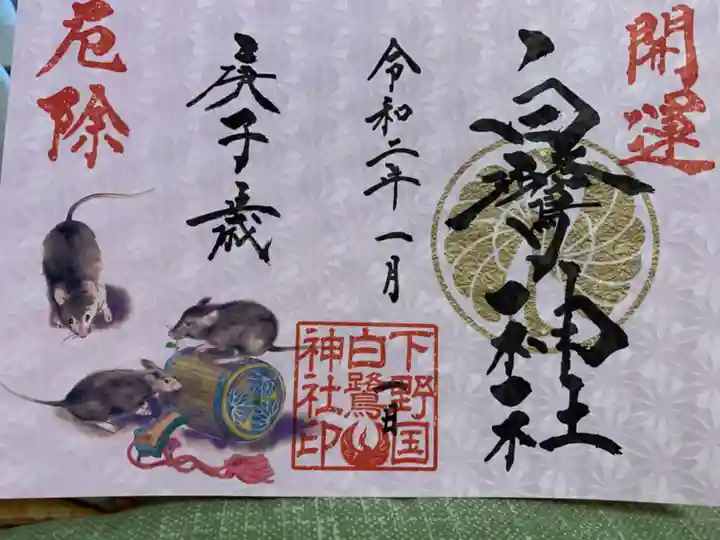 開運
白鷺神社
令和二年一月
一日
庚子歳
厄除
下野国
白鷺
神社印